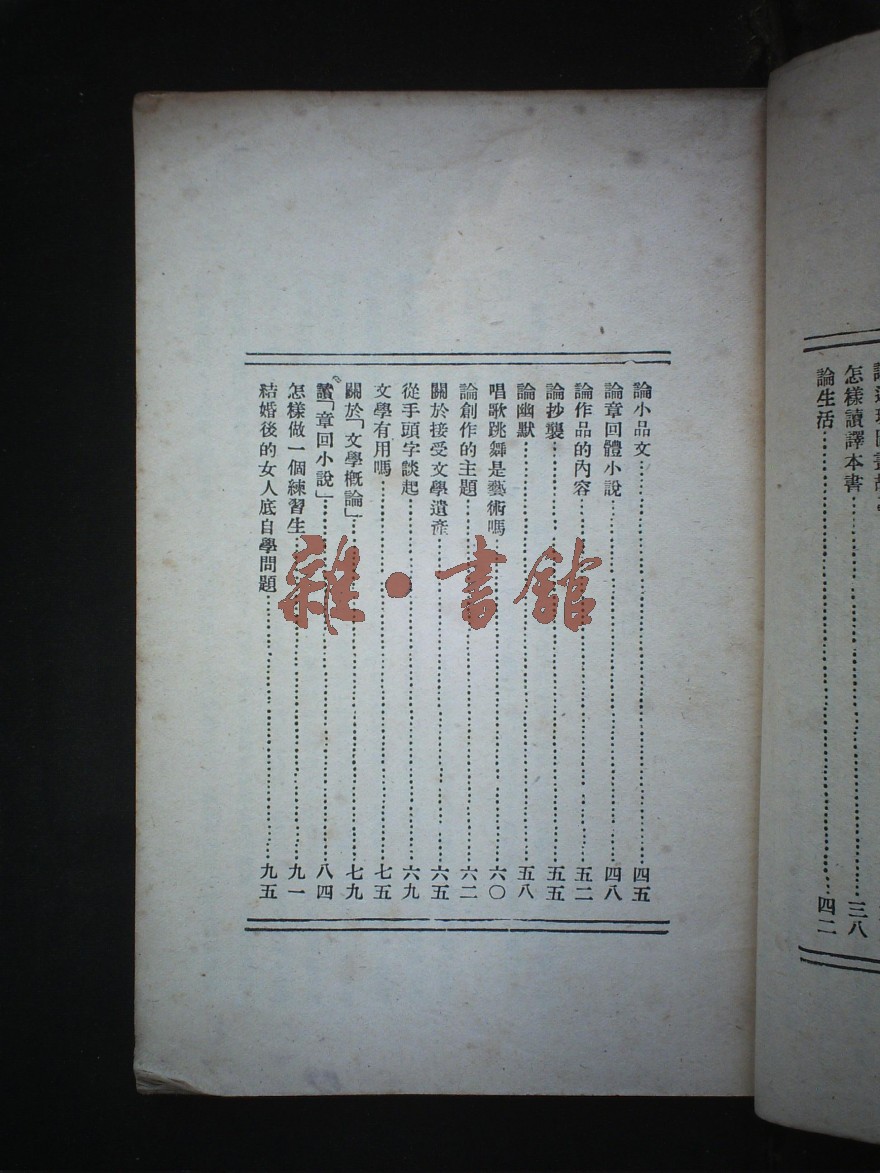 怎樣讀譯本書……三八
論生活……四二
論小品文……四五
論章回體小說……四八
論作品的內容……五二
論抄襲……五五
論幽默……五八
唱歌跳舞是藝術嗎……六〇
論創作的主題……六二
關於接受文學遺產……六五
從手頭字談起……六九
文學有用嗎……七五
關於「文學概論」……七九
「章回小說」……八四
怎樣做一個練習生……九一
結婚後的女人底自學問題……九五
雜·書館